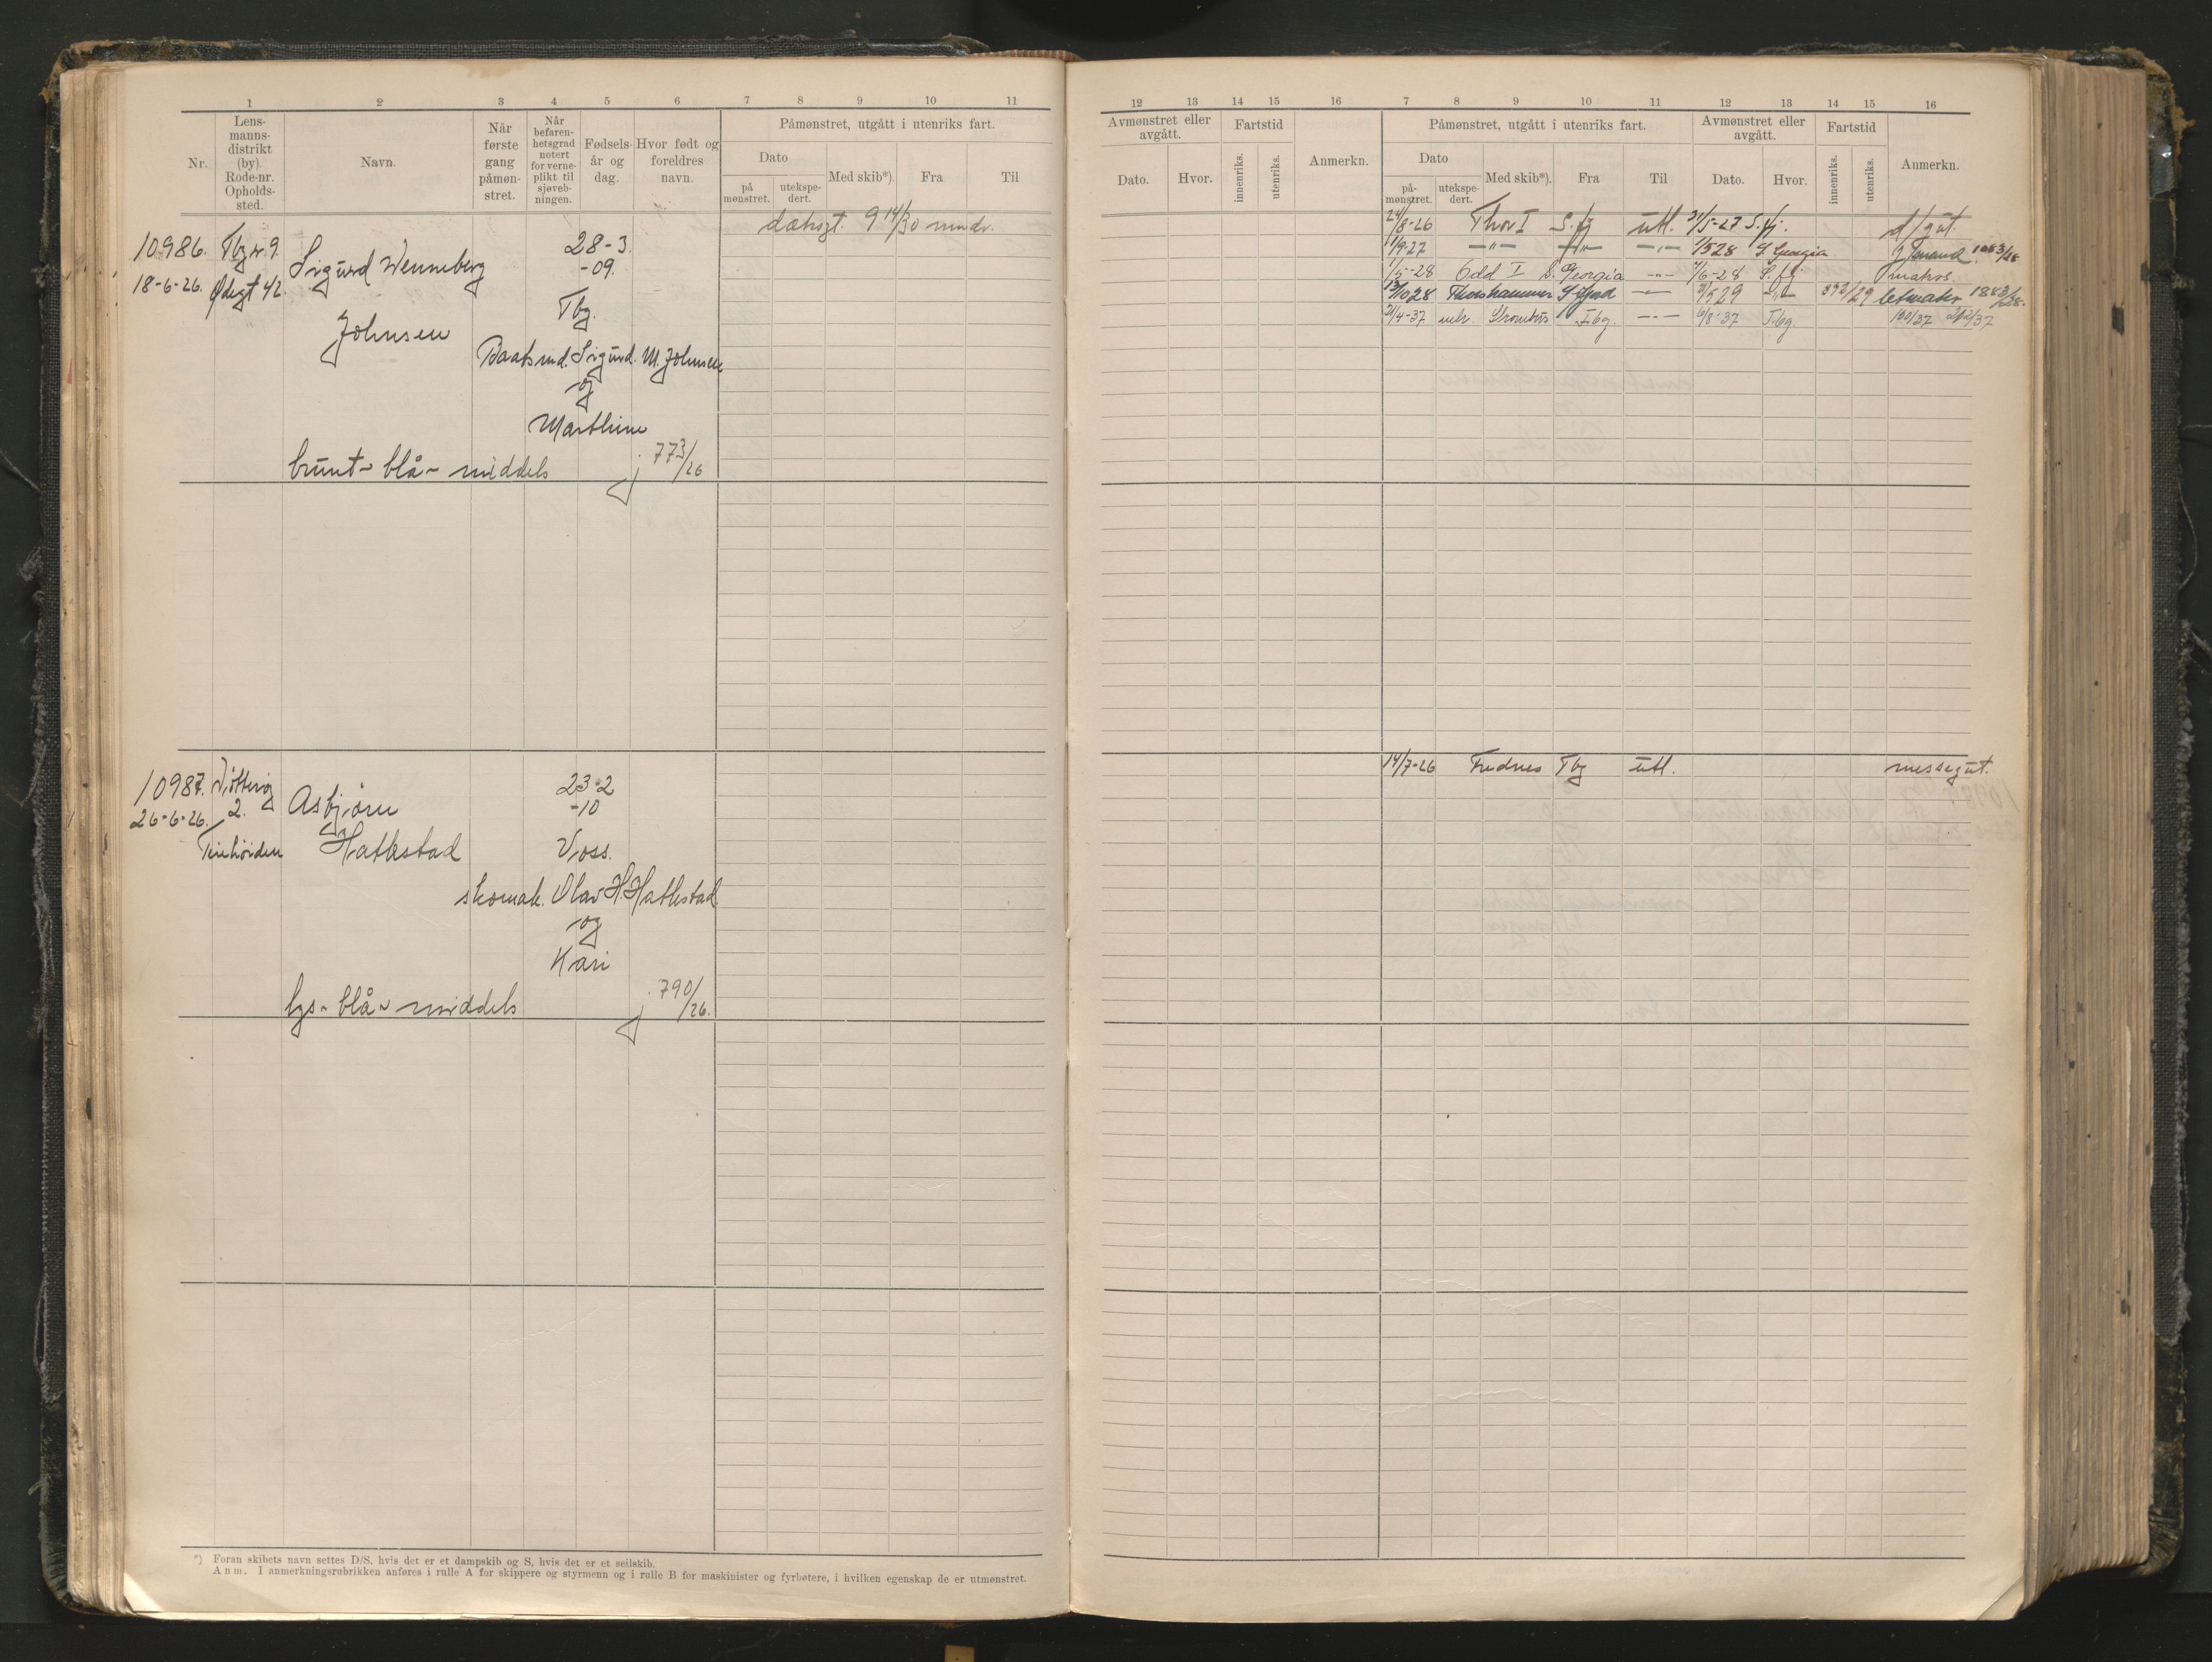 1 2 3 4 5 6 7 8 9 10 11
Nr.
Lens-
manns-
distrikt
(by).
Rode-nr.
Opholds-
sted.
Navn.
Når
første
gang
påmøn-
stret.
Når
befaren-
hetsgrad
notert
for verne-
plikt til
sjøveb-
ningen.
Fødsels-
år og
dag.
Hvor født og
foreldres
navn.
Påmønstret, utgått i utenriks fart.
Dato
på
mønstret.
utekspe-
dert.
Med skib*).
Fra
Til
10986. Tbg r. 9.
18-6-26.
Sigurd Wenneberg
Johnsen
28-3.
-09.
Tbg.
Baatsmd. Sigurd. M. Johnsen
og
Marthine
brunt - blå - middels
j 773/26
9 14/30 mndr.
10987.
2.
26-6-26.
Asbjørn
Hatlestad
23-2
-10
Voss.
skomak. Olav H. Hatlestad
og
Kari
lys - blå - middels
j 790/26.
*) Foran skibets navn settes D/S, hvis det er et dampskib og S, hvis det er et seilskib.
Anm. I anmerkningsrubrikken anføres i rulle A for skippere og styrmenn og i rulle B for maskinister og fyrbøtere, i hvilken egenskap de er utmønstret.
12 13 14 15 16 7 8 9 10 11 12 13 14 15 16
Avmønstret eller
avgått.
Dato.
Hvor.
Fartstid
innenriks.
utenriks.
Anmerkn.
Påmønstret, utgått i utenriks fart.
Dato
på-
mønstret.
utekspe-
dert.
Med skib*).
Fra
Til
Avmønstret eller
avgått.
Dato.
Hvor.
Fartstid
innenriks.
utenriks.
Anmerkn.
24/8-26 Thor I S.fj utl. 31/5-27 S.fj. d/gut.
1/9-27 —"— —"— —"— 1/5 28 S. Georgia
1/5-28 Odd I S. Georgia —"— /6-28 S.fj matros.
13/10 28 Thorshammer S.fjord —"— /5 29 —"— letmatr 1883/28.
21/4-37 —"— 6/8-37 Tbg 100/37 212/37
14/7-26 Frednes Tbg utl. messegut.